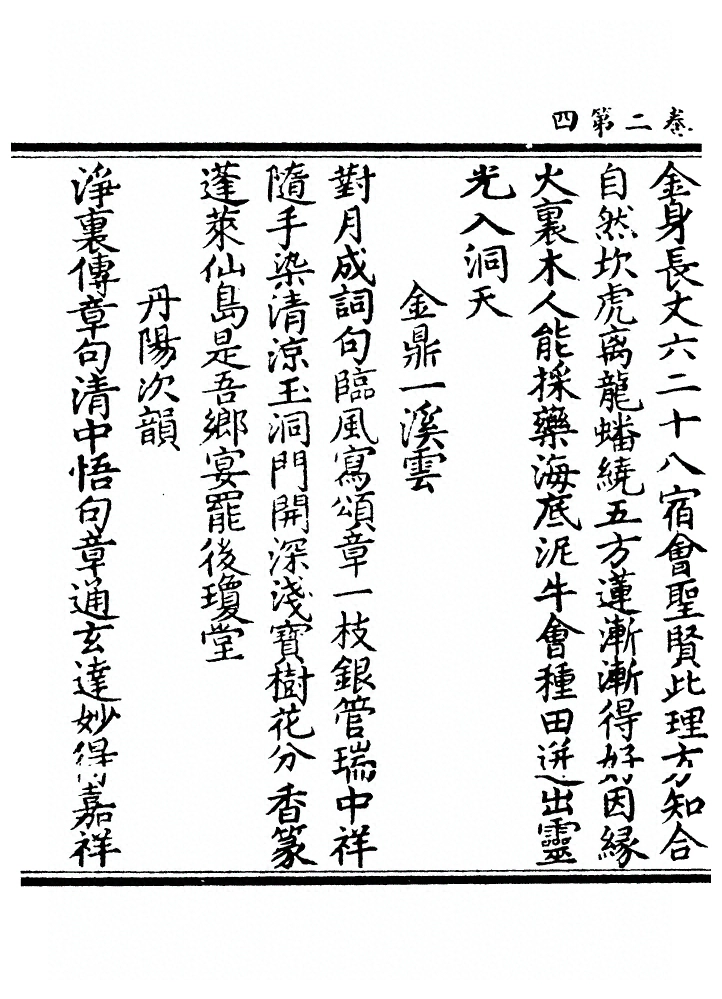 卷二第四
金身長丈六二十八宿會聖賢此理方知合
自然坎虎离龍蟠繞五方蓮漸漸得好因緣
火裏木人能採藥海底泥牛會種田迸出靈
光入洞天
金鼎一溪雲
對月成詞句臨風寫頌章一枝銀管瑞中祥
隨手染清涼玉洞門開深淺寳樹花分香篆
蓬萊仙島是吾鄉宴罷後瓊堂
丹陽次韻
淨裏傳章句清中悟句章通玄達妙得嘉祥